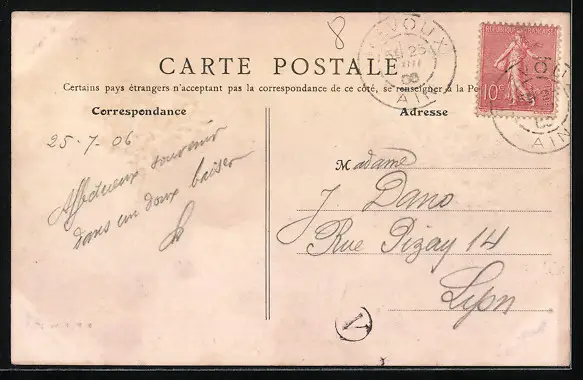 8
CARTE POSTALE
Certains pays étrangers n'acceptant pas la correspondance de ce côté, se renseigner à la Po
Correspondance
Adresse
25-7-06
Affectueux souvenir
dans un doux baiser
Madame
J. Dano
Rue Pizay 14
Lyon
REPUBLIQUE FRANÇAISE
10c
TREVOUX
25
AIN
VOUX
AIN